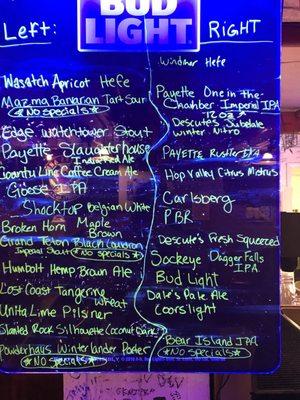 BUD
LIGHT
Left:
RIGHT
Widmer Hefe
Wasatch Apricot Hefe
Mazma Barvarian Tart Sour
*No specials*
Edge Watchtower Stout
Payette Slaughterhouse
Indie Red Ale
Country Ling Coffee Cream Ale
Goose IPA
Shocktop Belgian White
Broken Horn Maple
Brown
Grand Teton Black Cauldron
Imperial Stout *No specials*
Humbolt Hemp Brown Ale
Lost Coast Tangerine
Wheat
Unita Lime Pilsner
Slanted Rock Silhouette (Coconut Dark)
Powderhaus Winterlander Porter
*No specials*
Payette One in the
Chamber Imperial IPA
12 oz
Descutes Jubelale
winter Nitro
PAYETTE Rustler IPA
Hop Valley Citrus Mistress
Carlsberg
PBR
Descute's Fresh Squeezed
Sockeye Dagger Falls
IPA
Bud Light
Dale's Pale Ale
Coors light
Bear Island IPA
*No specials*